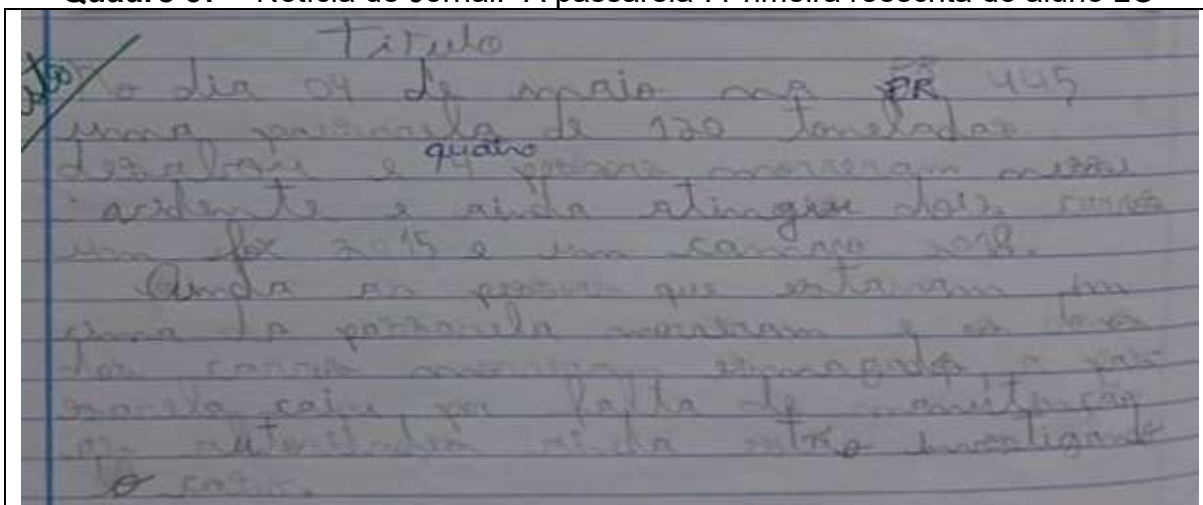 Titulo
No dia 04 de maio na PR 445
uma passarela de 120 toneladas
dezabou e quatro pessoas morreram nesse
acidente e ainda atingiu dois carros
um fox 2015 e um camaro 2018.
Ainda as pessoas que estavam em
cima da passarela morreram e os donos
dos carros morreram esmagados, a pas
sarela caiu por falta de manutenção
as autoridades ainda estão investigando
o caso.